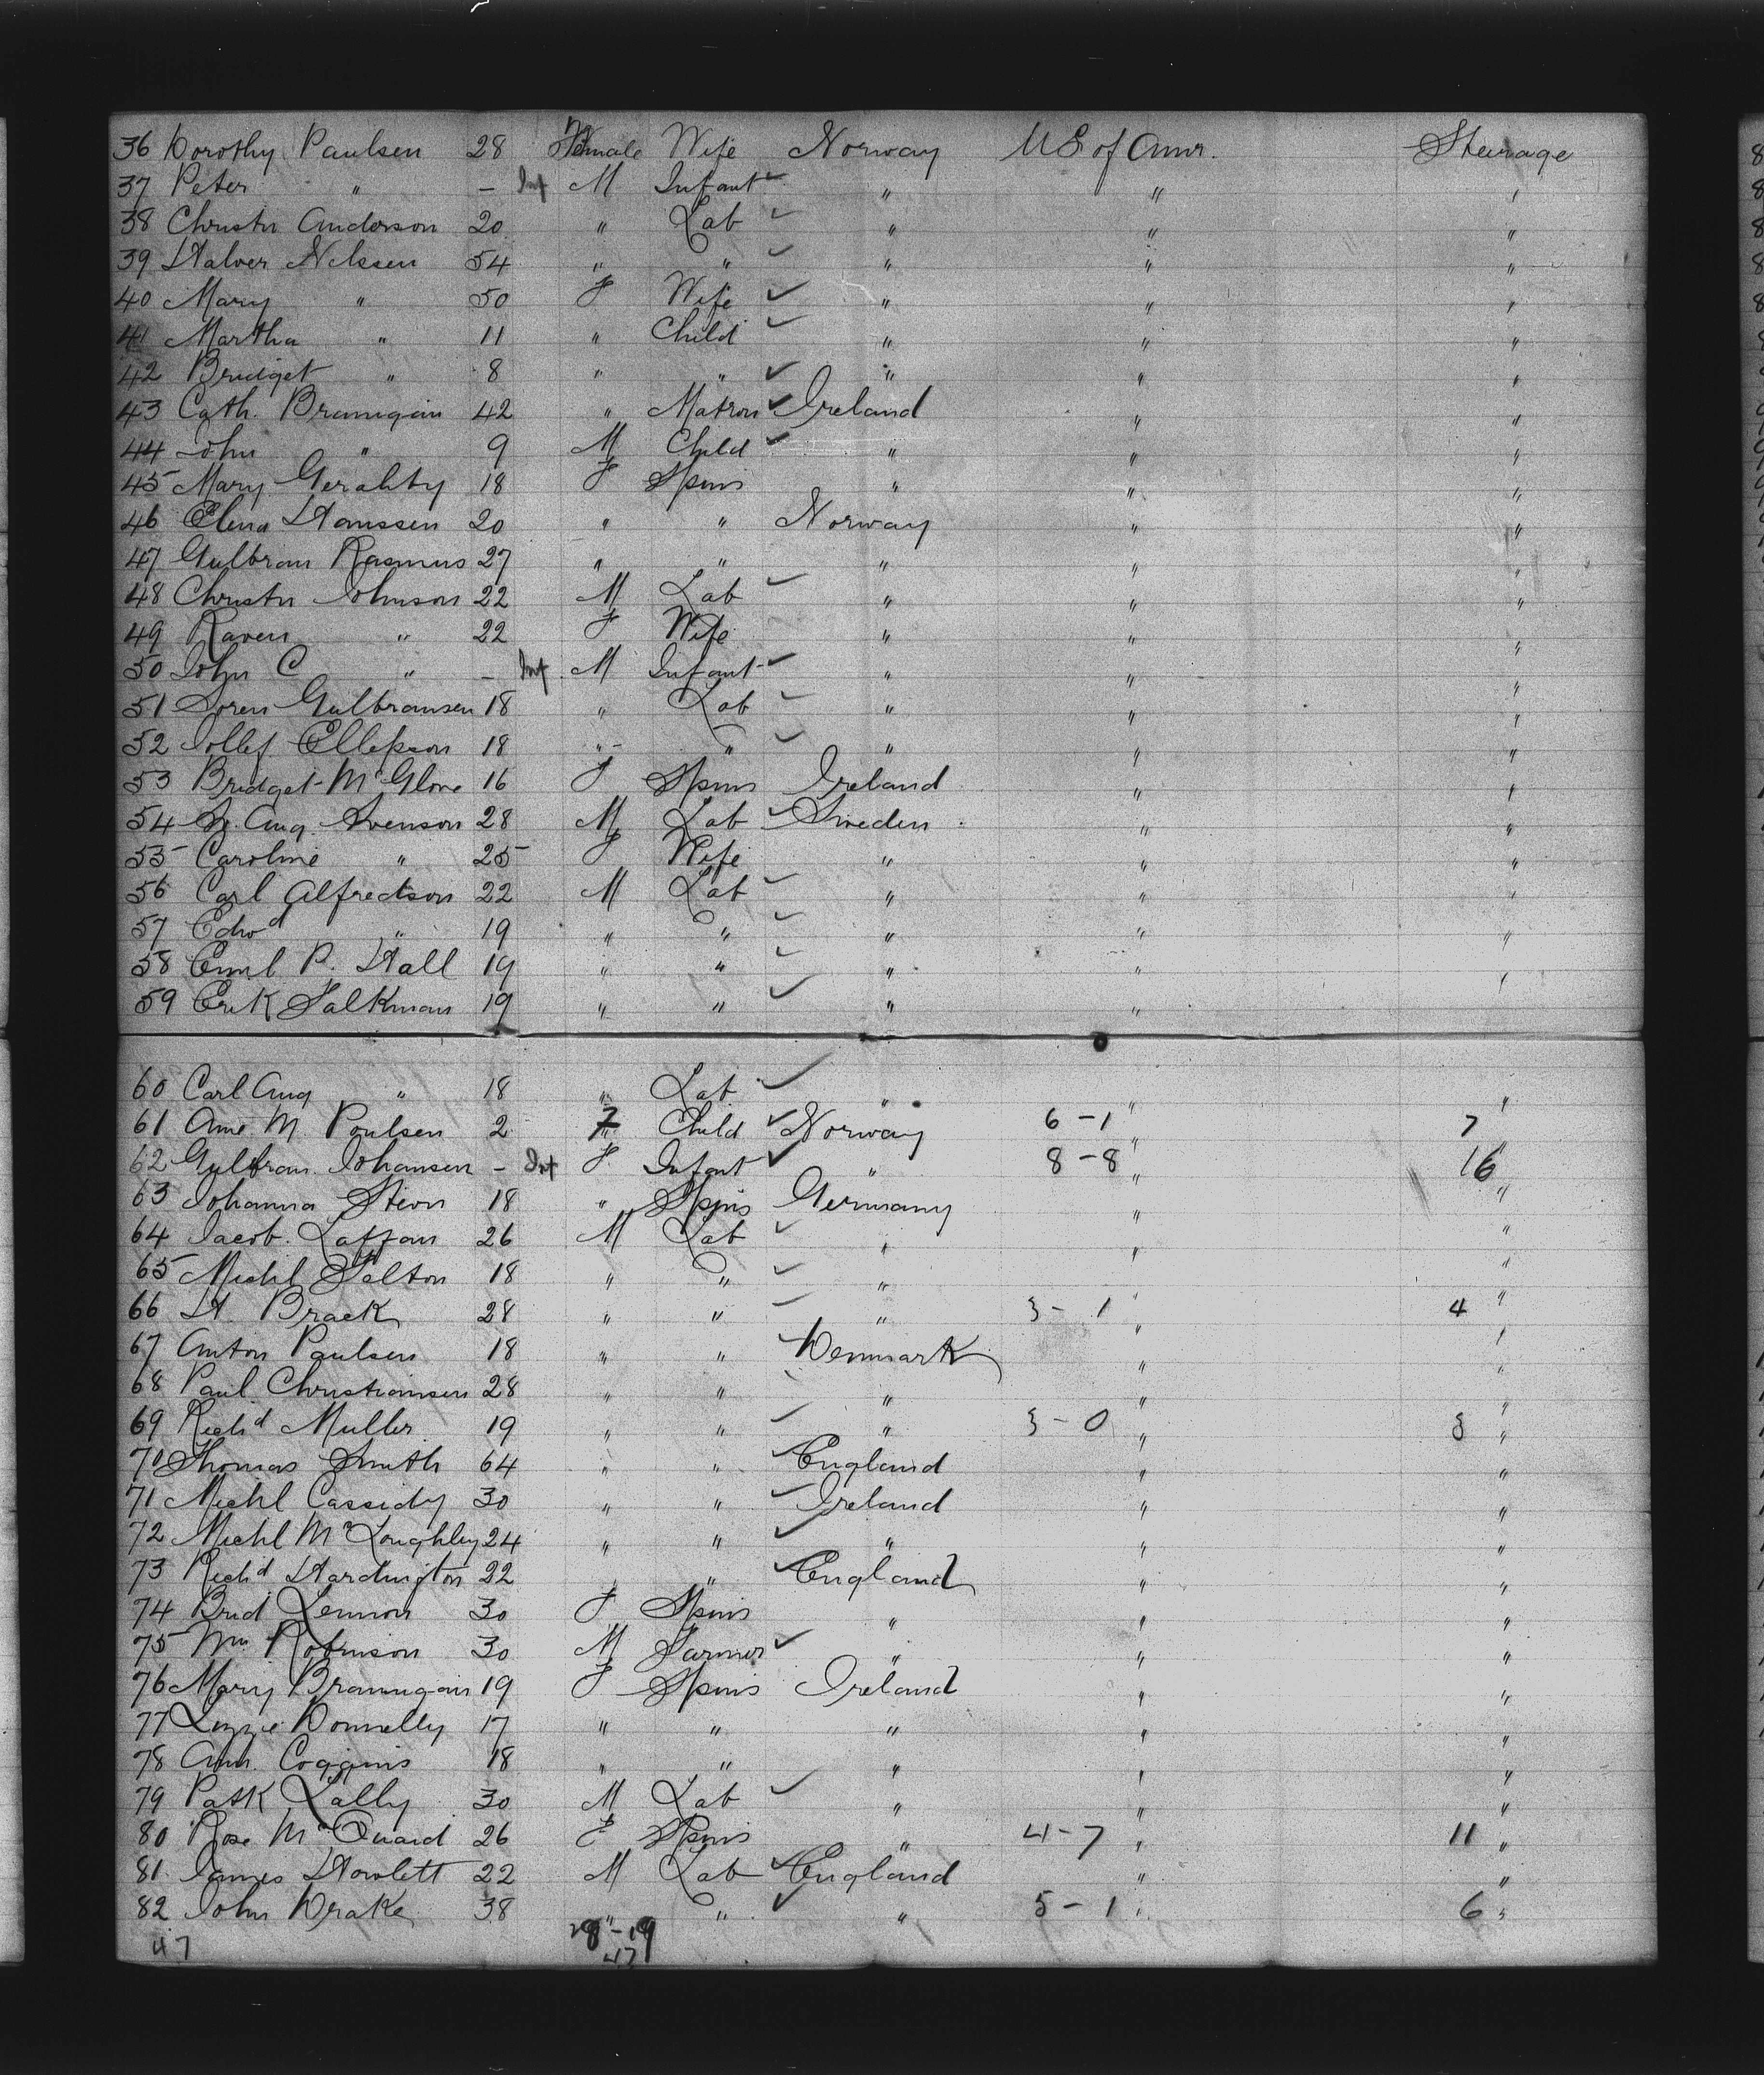 36 Dorothy Paulsen 28 Female Wife Norway US of Amr. Steerage
37 Peter " - Inf M Infant " " "
38 Christn Anderson 20 " Lab " " "
39 Halver Nelssen 54 " " " " "
40 Mary " 50 F Wife " " "
41 Martha " 11 " Child " " "
42 Bridget " 8 " " " " "
43 Cath. Brannigan 42 " Matron Ireland " "
44 John " 9 M Child " " "
45 Mary Gerahty 18 F Spins " " "
46 Elena Hanssen 20 " " Norway " "
47 Gulbran Rasmus 27 " " " " "
48 Christn Johnson 22 M Lab " " "
49 Raven " 22 F Wife " " "
50 John C " - Inf M Infant " " "
51 Soren Gulbransen 18 " Lab " " "
52 Tollef Ellefson 18 " " " " "
53 Bridget McGlone 16 F Spins Ireland " "
54 Aug. Svenson 28 M Lab Sweden " "
55 Caroline " 25 F Wife " " "
56 Carl Alfredson 22 M Lab " " "
57 Edwd " 19 " " " " "
58 Emil P. Hall 19 " " " " "
59 Erik Falkman 19 " " " " "
60 Carl Aug " 18 " Lab " " "
61 Ane M. Poulsen 2 F Child Norway 6-1 " 7
62 Gulbran Johansen - Inf F. Infant " 8-8 " 16 "
63 Johanna Stern 18 " Spins Germany " "
64 Jacob. Laffan 26 M Lab " " "
65 Michl Felton 18 " " " " "
66 H. Brack 28 " " " 3-1 " 4 "
67 Anton Paulsen 18 " " Denmark " "
68 Paul Christiansen 28 " " " " "
69 Richd Muller 19 " " " 3-0 " 3 "
70 Thomas Smith 64 " " England " "
71 Michl Cassidy 30 " " Ireland " "
72 Michl McLoughley 24 " " " " "
73 Richd Hardington 22 " " England " "
74 Brid Lennon 30 F Spins " " "
75 Wm Robinson 30 M Farmer " " "
76 Mary Brannigan 19 F Spins Ireland " "
77 Lizzie Donnelly 17 " " " " "
78 Ann. Coggins 18 " " " " "
79 Patk Lally 30 M Lab " " "
80 Rose McQuaid 26 F Spins " 4-7 " 11 "
81 James Howlett 22 M Lab England " "
82 John Drake 38 " " " 5-1 " 6 "
47 28-19
47